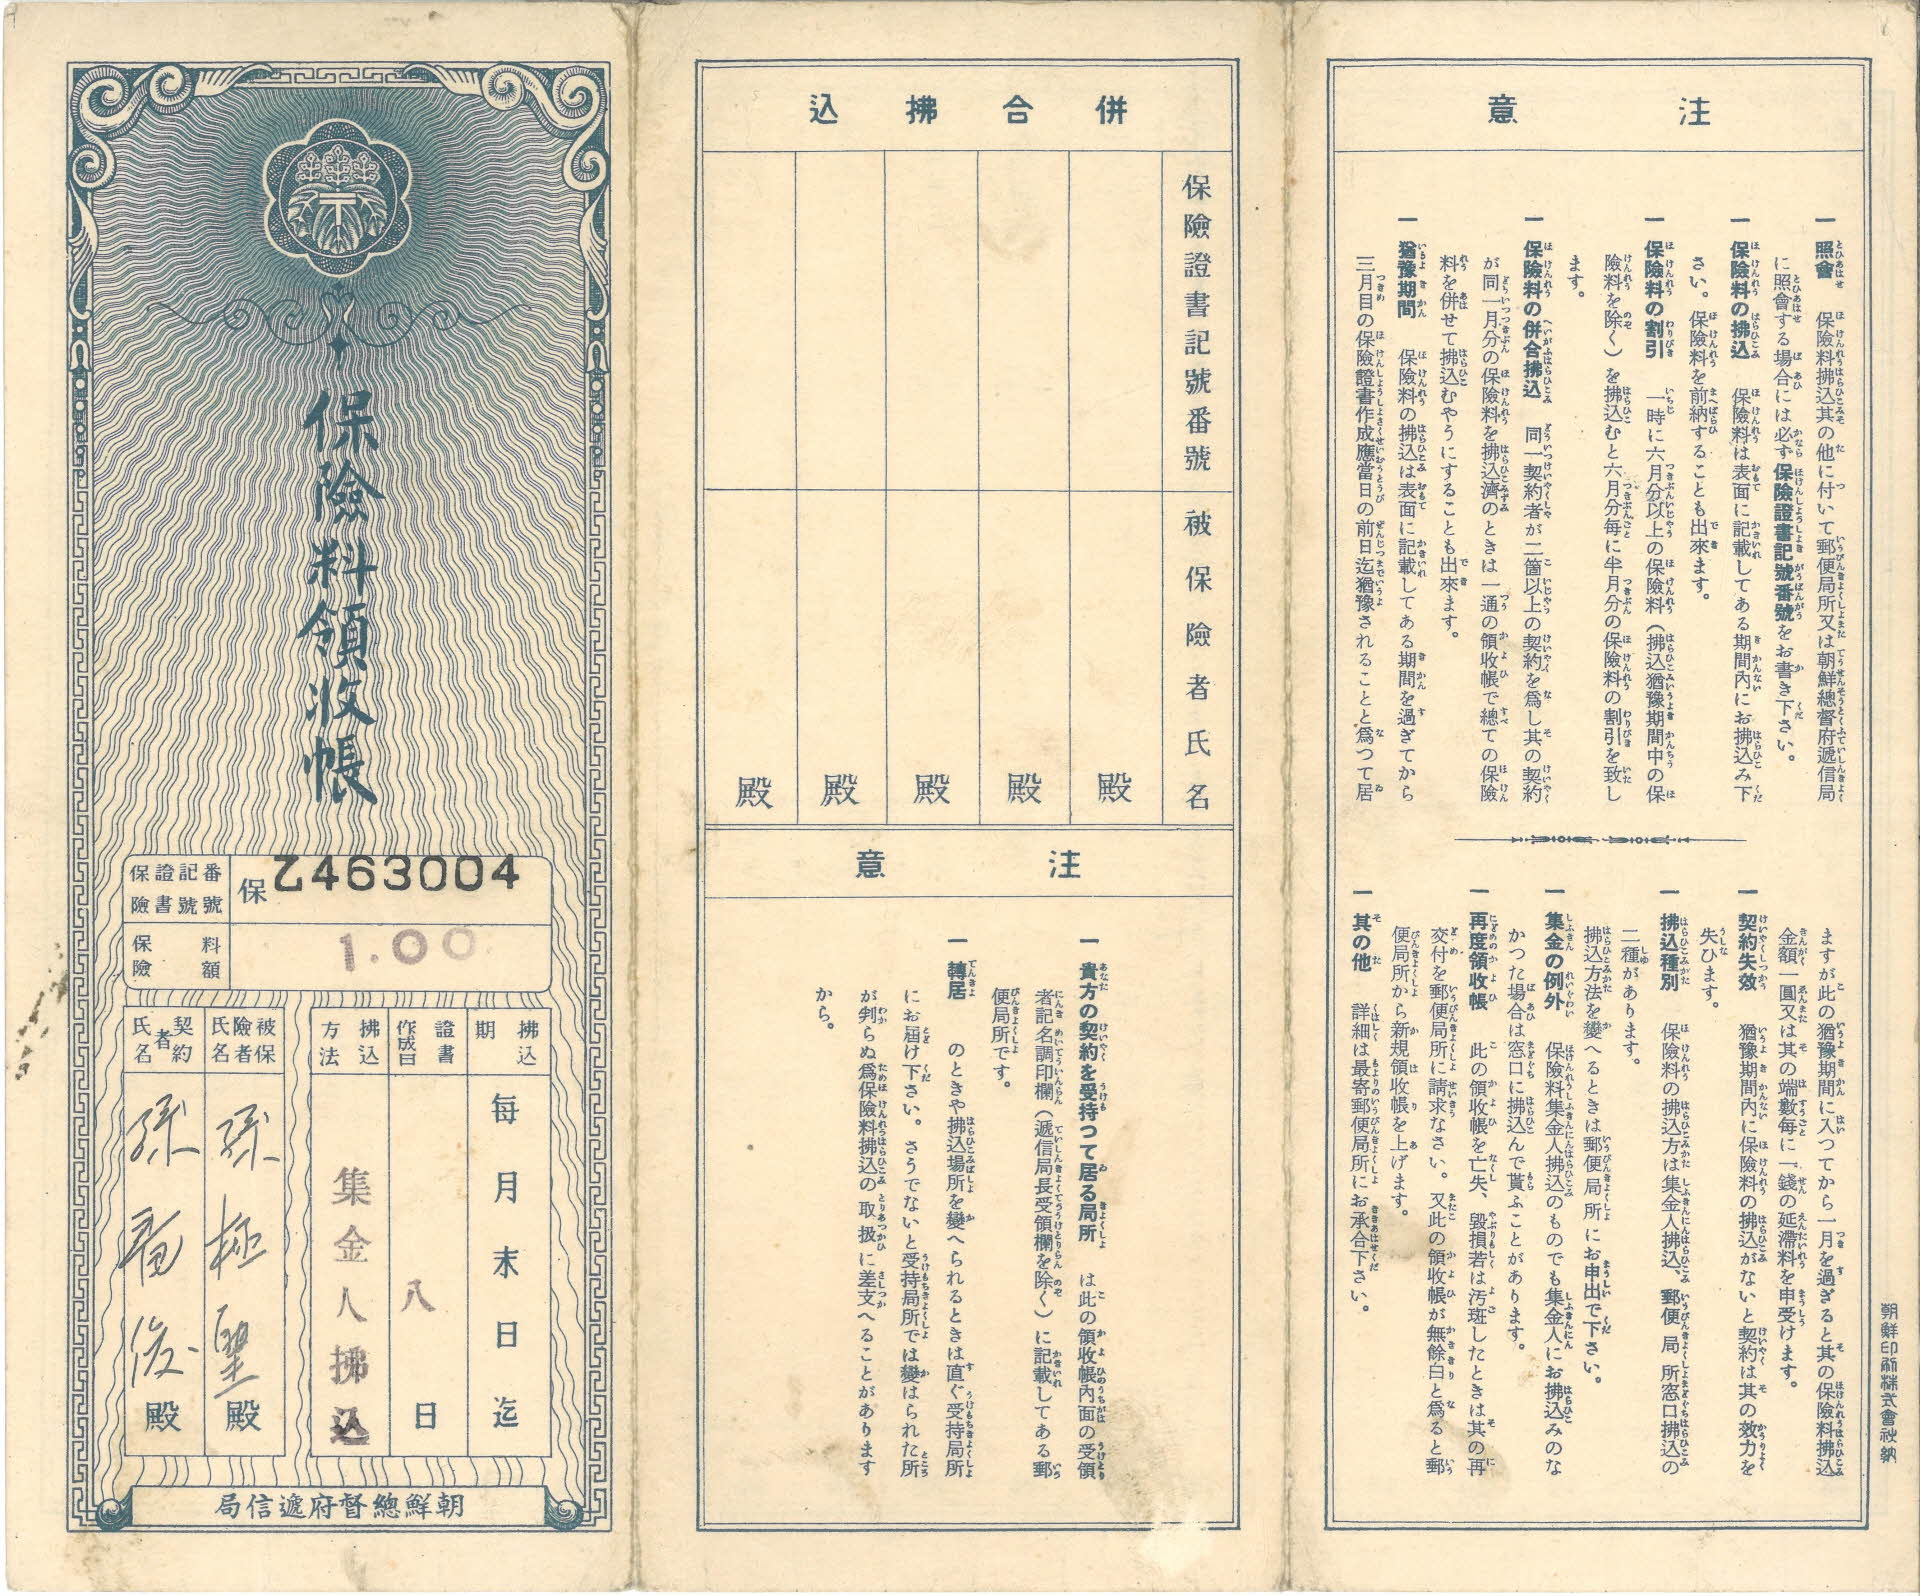 注意
一 照會 保險料拂込其の他に付いて郵便局所又は朝鮮總督府遞信局
に照會する場合には必ず保險證書記號番號をお書き下さい。
一 保險料の拂込 保險料は表面に記載してある期間內にお拂込み下
さい。保險料を前納することも出來ます。
一 保險料の割引 一時に六月分以上の保險料(拂込猶豫期間中の保
險料を除く)を拂込むと六月分每に半月分の保險料の割引を致し
ます。
一 保險料の併合拂込 同一契約者が二箇以上の契約を爲し其の契約
が同一月分の保險料を拂込濟のときは一通の領收帳で總ての保險
料を併せて拂込むやうにすることも出來ます。
一 猶豫期間 保險料の拂込は表面に記載してある期間を過ぎてから
三月目の保險證書作成應當日の前日迄猶豫されることと爲つて居
ますが此の猶豫期間に入つてから一月を過ぎると其の保險料拂込
金額一圓又は其の端數每に一錢の延滯料を申受けます。
一 契約失效 猶豫期間內に保險料の拂込がないと契約は其の效力を
失ひます。
一 拂込種別 保險料の拂込方は集金人拂込、郵便局所窓口拂込の
二種があります。
拂込方法を變へるときは郵便局所にお申出で下さい。
一 集金の例外 保險料集金人拂込のものでも集金人にお拂込みのな
かつた場合は窓口に拂込んで貰ふことがあります。
一 再度領收帳 此の領收帳を亡失、毀損若は汚斑したときは其の再
交付を郵便局所に請求なさい。又此の領收帳が無餘白と爲ると郵
便局所から新規領收帳を上げます。
一 其の他 詳細は最寄郵便局所にお承合下さい。
朝鮮印刷株式會社納
併合拂込
保險證書記號番號
被保險者氏名
殿
殿
殿
殿
殿
注意
一 貴方の契約を受持つて居る局所 は此の領收帳內面の受領
者記名調印欄(遞信局長受領欄を除く)に記載してある郵
便局所です。
一 轉居 のときや拂込場所を變へられるときは直ぐ受持局所
にお屆け下さい。さうでないと受持局所では變はられた所
が判らぬ爲保險料拂込の取扱に差支へることがあります
から。
保險料領收帳
保險證書記號番號
保 乙463004
保險料額
1.00
拂込期
每月末日迄
證書作成日
八日
拂込方法
集金人拂込
被保險者氏名
孫極聖殿
契約者氏名
殿
朝鮮總督府遞信局